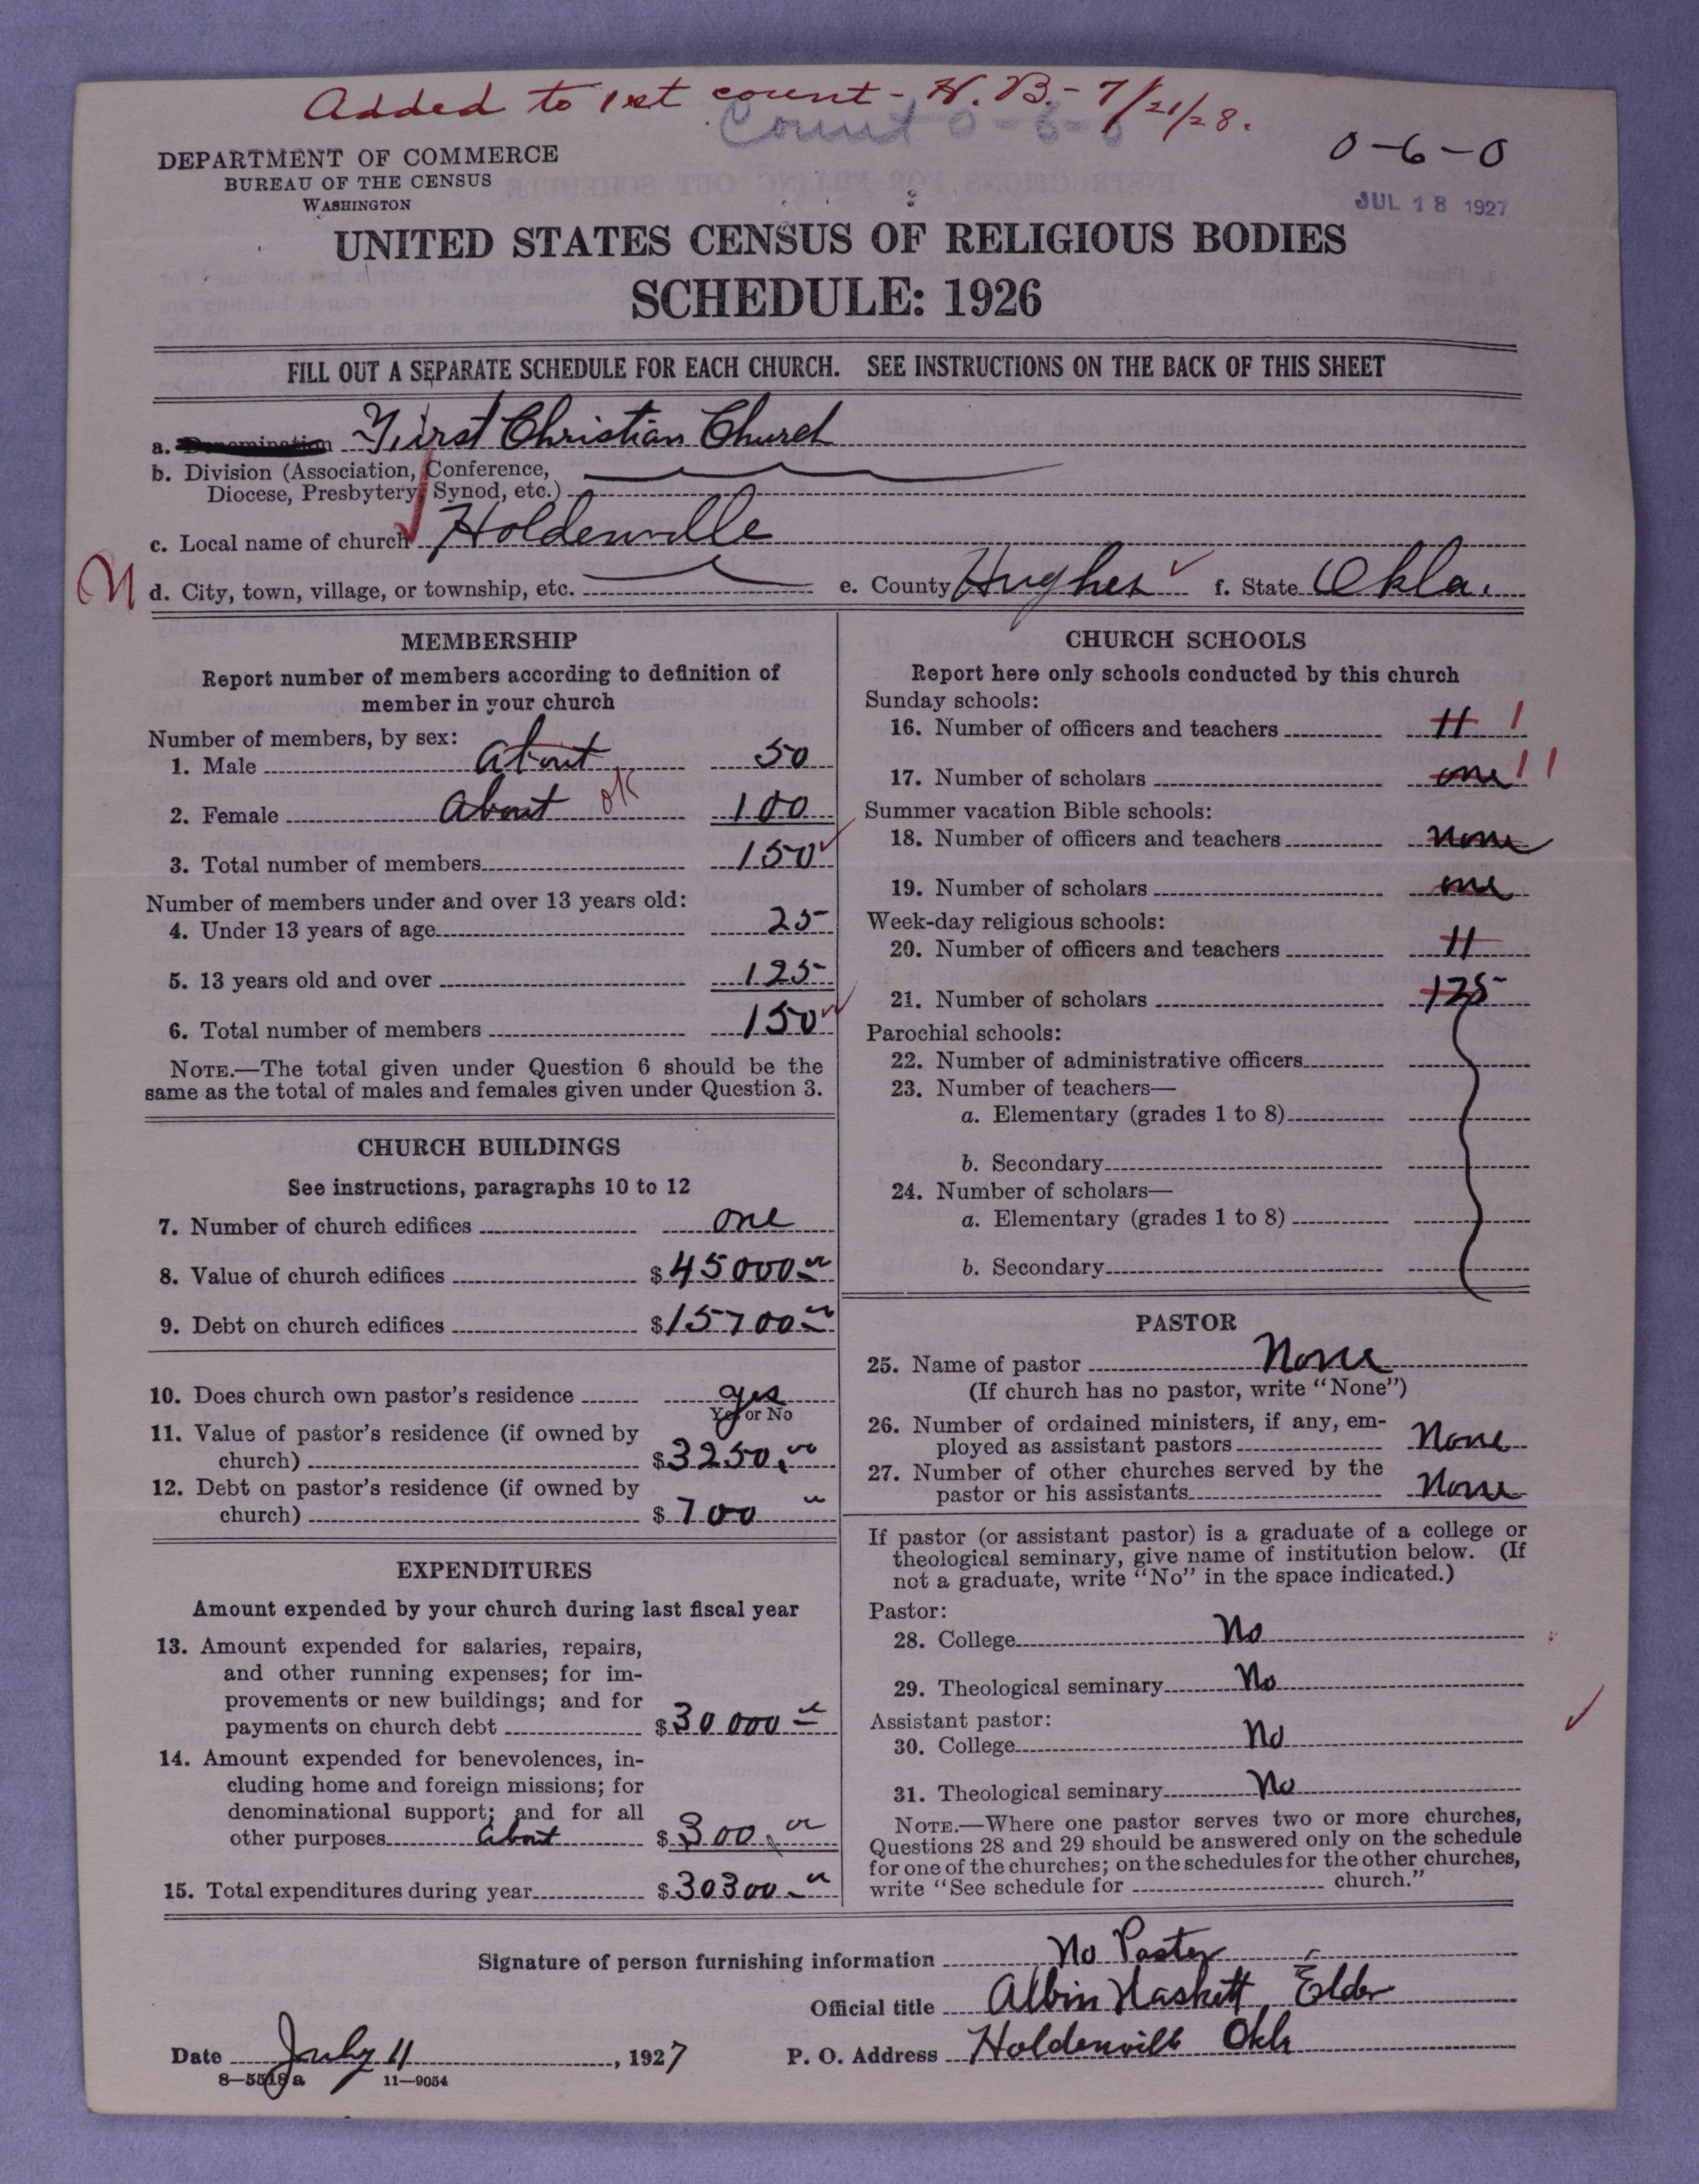 Added to 1st count - H. B. - 7/21/28.
Count 0-6-0
0-6-0
DEPARTMENT OF COMMERCE
BUREAU OF THE CENSUS
WASHINGTON
JUL 18 1927
UNITED STATES CENSUS OF RELIGIOUS BODIES
SCHEDULE: 1926
FILL OUT A SEPARATE SCHEDULE FOR EACH CHURCH. SEE INSTRUCTIONS ON THE BACK OF THIS SHEET
a. Denomination First Christian Church
b. Division (Association, Conference,
Diocese, Presbytery, Synod, etc.)
c. Local name of church Holdenville
d. City, town, village, or township, etc. e. County Hughes f. State Okla.
MEMBERSHIP
Report number of members according to definition of
member in your church
Number of members, by sex:
1. Male about 50
2. Female about ok 100
3. Total number of members 150
Number of members under and over 13 years old:
4. Under 13 years of age 25
5. 13 years old and over 125
6. Total number of members 150
NOTE.—The total given under Question 6 should be the
same as the total of males and females given under Question 3.
CHURCH BUILDINGS
See instructions, paragraphs 10 to 12
7. Number of church edifices one
8. Value of church edifices $45000 00
9. Debt on church edifices $15700 00
10. Does church own pastor's residence yes
Yes or No
11. Value of pastor's residence (if owned by
church) $3250.00
12. Debt on pastor's residence (if owned by
church) $700 00
EXPENDITURES
Amount expended by your church during last fiscal year
13. Amount expended for salaries, repairs,
and other running expenses; for im-
provements or new buildings; and for
payments on church debt $30 000 00
14. Amount expended for benevolences, in-
cluding home and foreign missions; for
denominational support; and for all
other purposes about $300.00
15. Total expenditures during year $30300.00
CHURCH SCHOOLS
Report here only schools conducted by this church
Sunday schools:
16. Number of officers and teachers 11
17. Number of scholars one
Summer vacation Bible schools:
18. Number of officers and teachers none
19. Number of scholars one
Week-day religious schools:
20. Number of officers and teachers 11
21. Number of scholars 125
Parochial schools:
22. Number of administrative officers
23. Number of teachers—
a. Elementary (grades 1 to 8)
b. Secondary
24. Number of scholars—
a. Elementary (grades 1 to 8)
b. Secondary
PASTOR
25. Name of pastor None
(If church has no pastor, write "None")
26. Number of ordained ministers, if any, em-
ployed as assistant pastors None
27. Number of other churches served by the
pastor or his assistants None
If pastor (or assistant pastor) is a graduate of a college or
theological seminary, give name of institution below. (If
not a graduate, write "No" in the space indicated.)
Pastor:
28. College No
29. Theological seminary No
Assistant pastor:
30. College No
31. Theological seminary No
NOTE.—Where one pastor serves two or more churches,
Questions 28 and 29 should be answered only on the schedule
for one of the churches; on the schedules for the other churches,
write "See schedule for church."
Signature of person furnishing information No Pastor
Official title Albin Haskett, Elder
Date July 11, 1927 P. O. Address Holdenville Okla
8—5518 a 11—9054